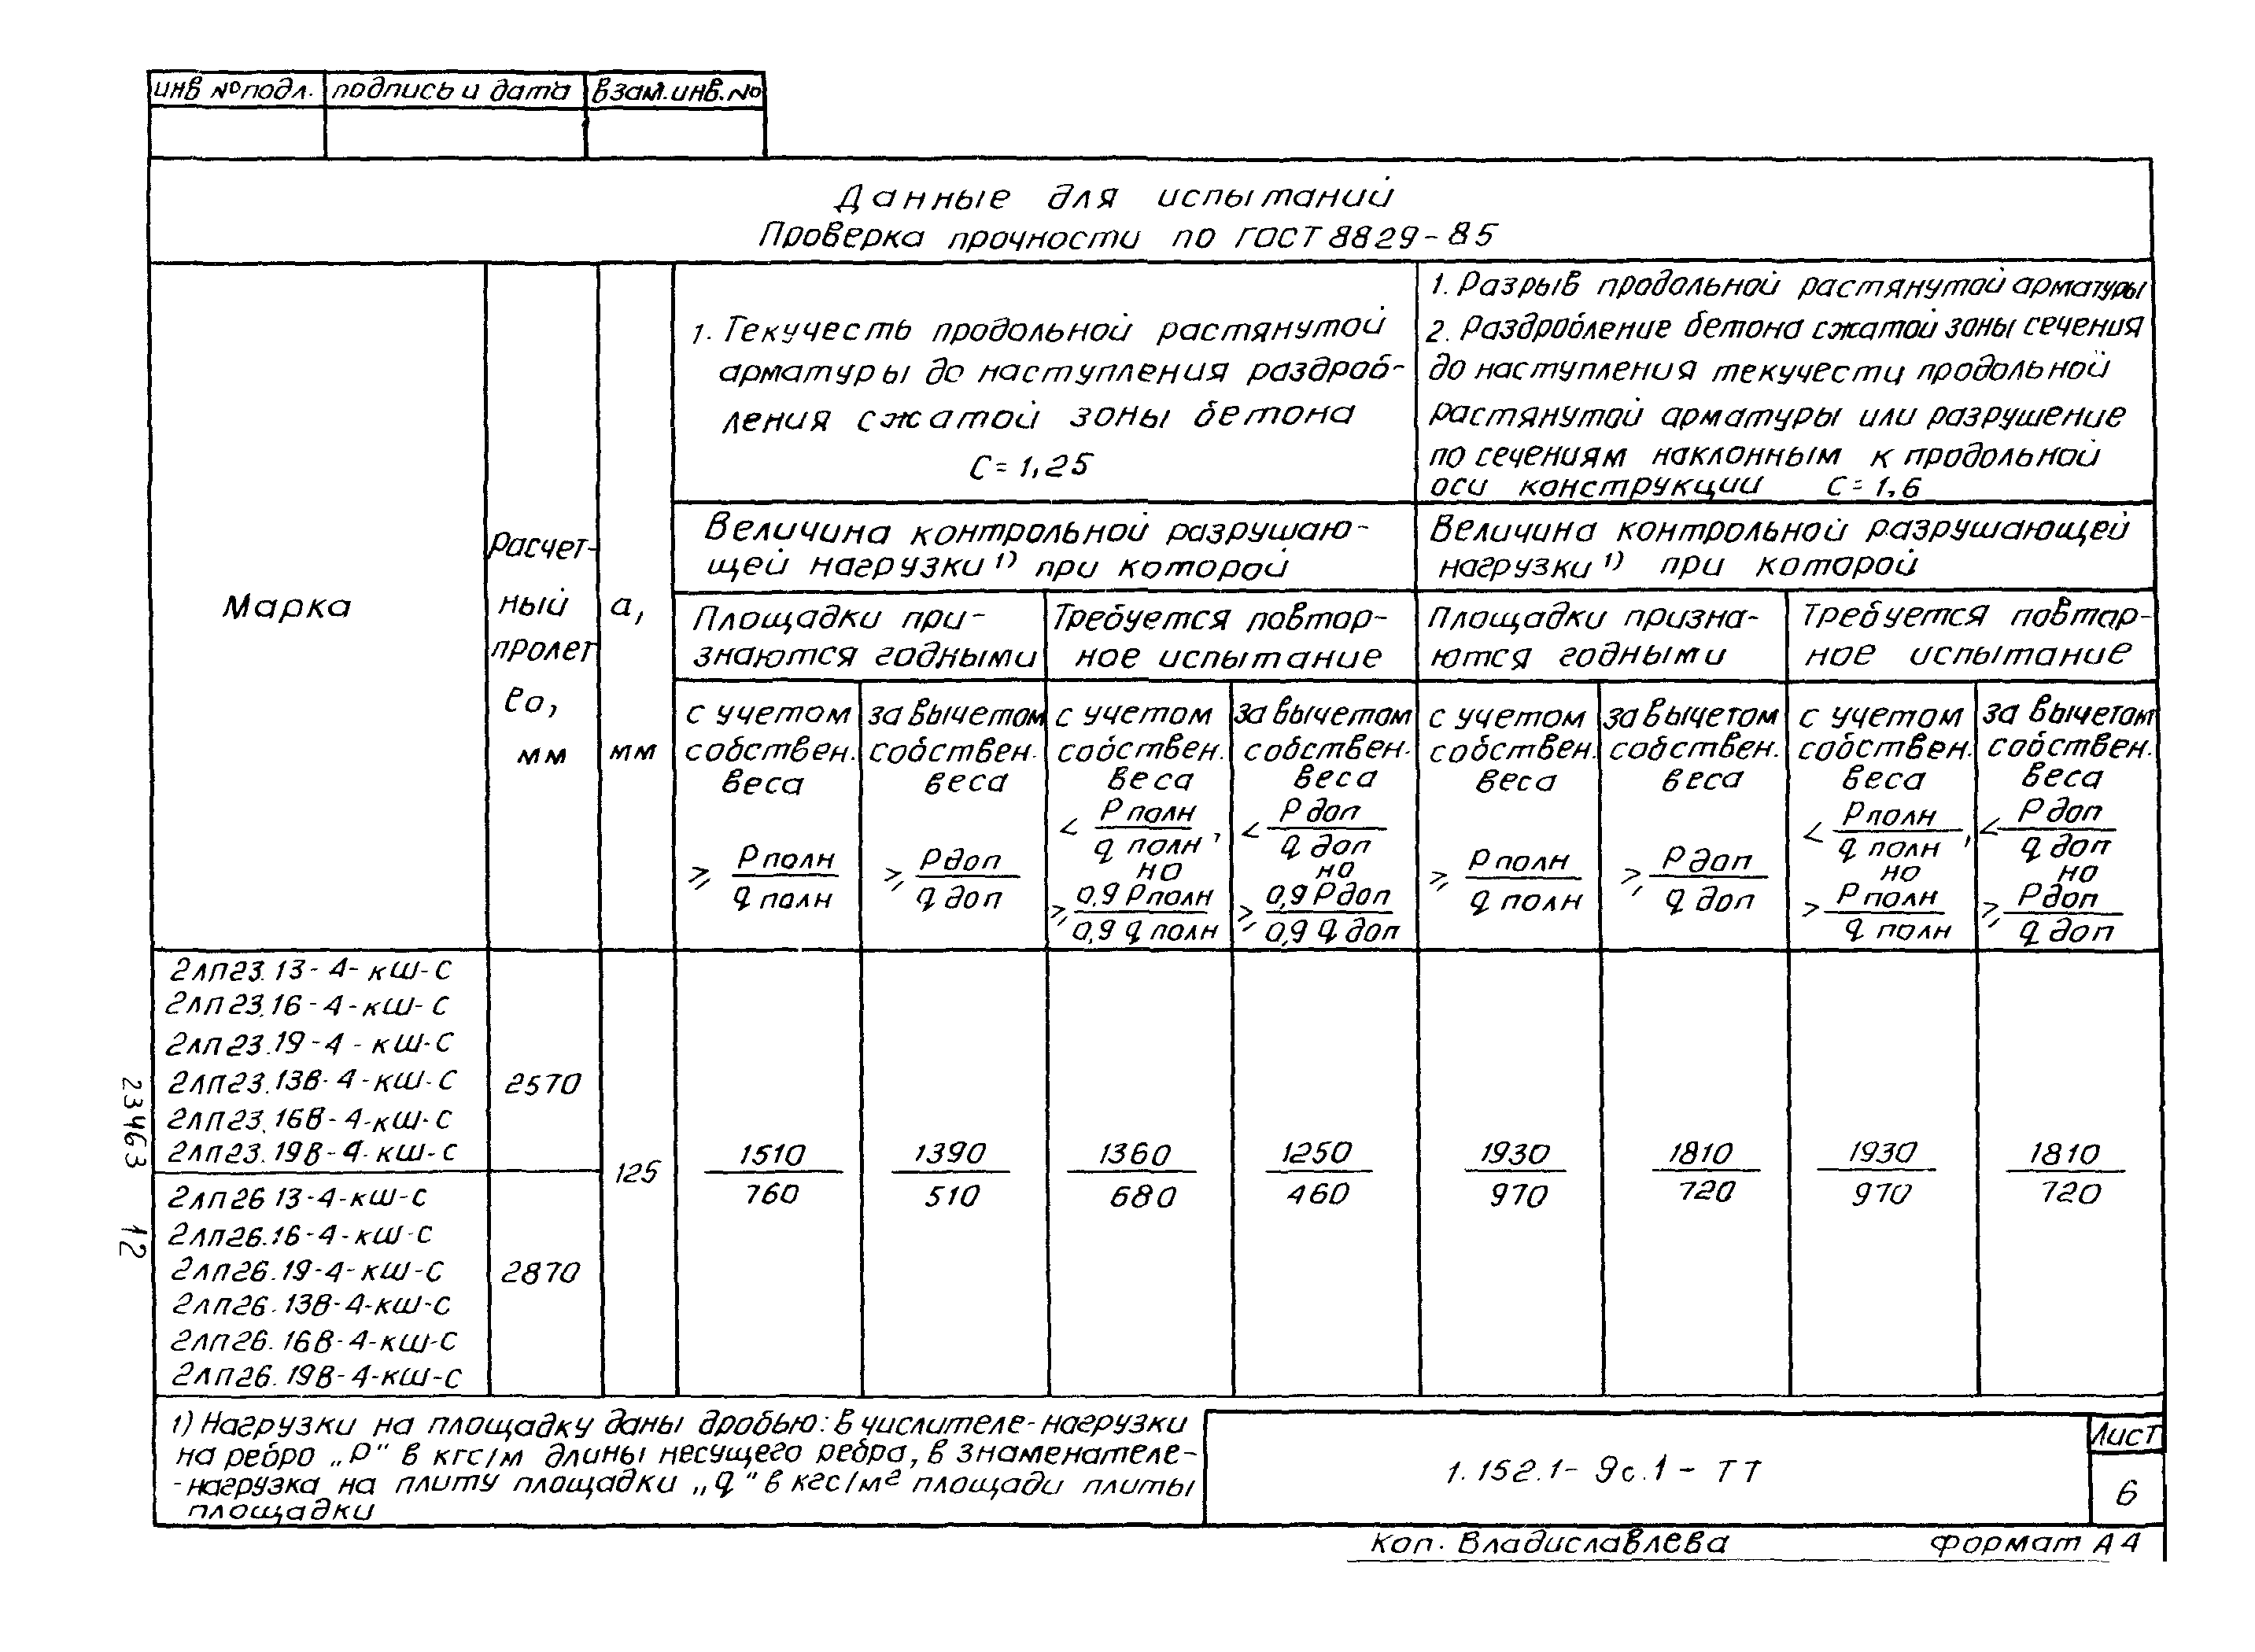 инв № подл. подпись и дата взам. инв. №
Данные для испытаний
Проверка прочности по ГОСТ 8829-85
Марка
Расчет-
ный
пролет
ℓо,
мм
а,
мм
1. Текучесть продольной растянутой
арматуры до наступления раздроб-
ления сжатой зоны бетона
С=1,25
1. Разрыв продольной растянутой арматуры
2. Раздробление бетона сжатой зоны сечения
до наступления текучести продольной
растянутой арматуры или разрушение
по сечениям наклонным к продольной
оси конструкции С=1,6
Величина контрольной разрушаю-
щей нагрузки 1) при которой
Величина контрольной разрушающей
нагрузки 1) при которой
Площадки при-
знаются годными
Требуется повтор-
ное испытание
Площадки призна-
ются годными
Требуется повтор-
ное испытание
с учетом
собствен.
веса
⩾ Рполн
q полн
за вычетом
собствен.
веса
⩾ Рдоп
q доп
с учетом
собствен.
веса
< Рполн
q полн,
но
⩾ 0,9 Рполн
0,9 q полн
за вычетом
собствен.
веса
< Рдоп
q доп
но
⩾ 0,9 Рдоп
0,9 q доп
с учетом
собствен.
веса
⩾ Рполн
q полн
за вычетом
собствен.
веса
⩾ Рдоп
q доп
с учетом
собствен.
веса
< Рполн
q полн,
но
> Рполн
q полн
за вычетом
собствен.
веса
< Рдоп
q доп
но
⩾ Рдоп
q доп
2ЛП23.13-4-кш-С
2ЛП23.16-4-кш-С
2ЛП23.19-4-кш-С
2ЛП23.13В-4-кш-С
2ЛП23.16В-4-кш-С
2ЛП23.19В-4-кш-С
2570
2ЛП26 13-4-кш-С
2ЛП26.16-4-кш-С
2ЛП26.19-4-кш-С
2ЛП26.13В-4-кш-С
2ЛП26.16В-4-кш-С
2ЛП26.19В-4-кш-С
2870
125
1510 1390 1360 1250 1930 1810 1930 1810
760 510 680 460 970 720 970 720
23463 12
1) Нагрузки на площадку даны дробью: В числителе-нагрузки
на ребро „Р" в кгс/м длины несущего ребра, в знаменателе-
-нагрузка на плиту площадки „q" в кгс/м² площади плиты
площадки
1.152.1-9с.1-ТТ
Лист
6
Коп. Владиславлева Формат А4